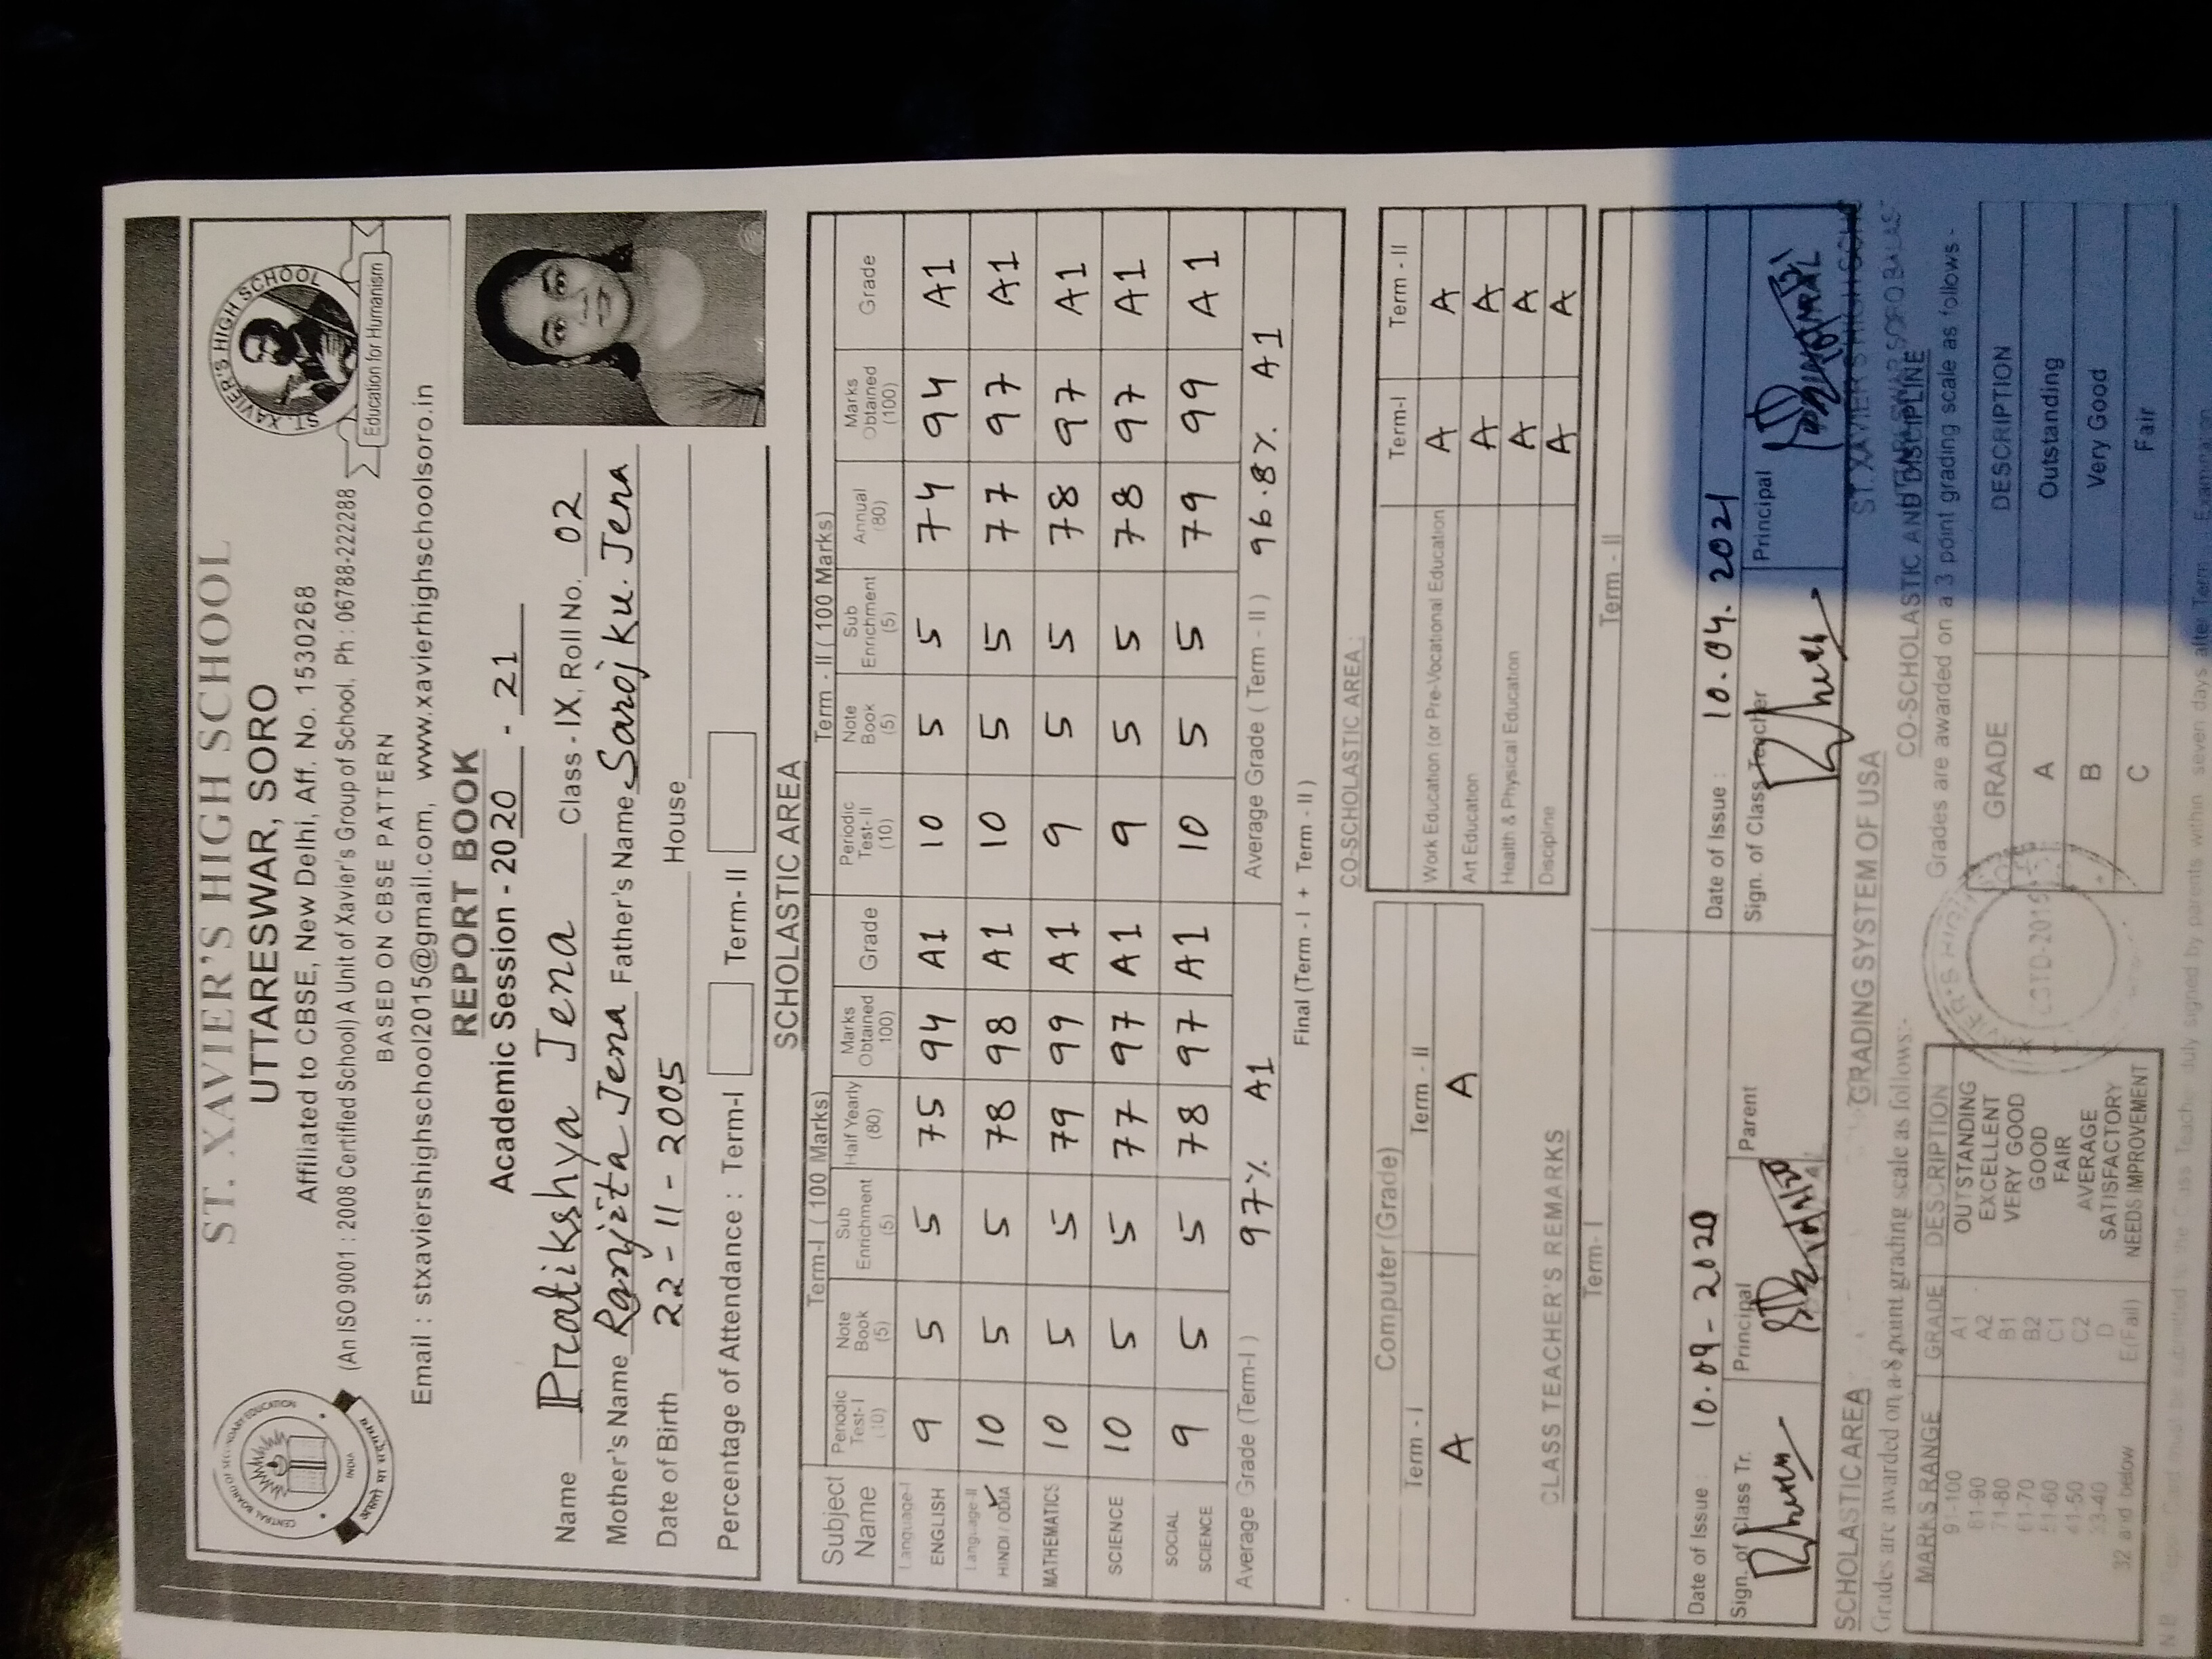 ST. XAVIER'S HIGH SCHOOL
UTTARESWAR, SORO
Affiliated to CBSE, New Delhi, Aff. No. 1530268
(An ISO 9001 : 2008 Certified School) A Unit of Xavier's Group of School, Ph : 06788-222288
BASED ON CBSE PATTERN
Email : stxaviershighschool2015@gmail.com, www.xavierhighschoolsoro.in
CENTRAL BOARD OF SECONDARY EDUCATION
INDIA
ST. XAVIER'S HIGH SCHOOL
Education for Humanism
REPORT BOOK
Academic Session - 2020 - 21
Name Pratikshya Jena Class - IX, Roll No. 02
Mother's Name Ranjita Jena Father's Name Saroj Ku. Jena
Date of Birth 22-11-2005 House
Percentage of Attendance : Term-I Term- II
SCHOLASTIC AREA
Subject Name Term-I ( 100 Marks) Term - II ( 100 Marks)
Periodic Test-I (10) Note Book (5) Sub Enrichment (5) Half Yearly (80) Marks Obtained 100) Grade Periodic Test-II (10) Note Book (5) Sub Enrichment (5) Annual (80) Marks Obtained (100) Grade
Language-I ENGLISH 9 5 5 75 94 A1 10 5 5 74 94 A1
Language-II HINDI / ODIA 10 5 5 78 98 A1 10 5 5 77 97 A1
MATHEMATICS 10 5 5 79 99 A1 9 5 5 78 97 A1
SCIENCE 10 5 5 77 97 A1 9 5 5 78 97 A1
SOCIAL SCIENCE 9 5 5 78 97 A1 10 5 5 79 99 A1
Average Grade (Term-I ) 97% A1 Average Grade ( Term - II ) 96.8% A1
Final (Term - I + Term - II )
CO-SCHOLASTIC AREA :
Computer (Grade)
Term - I Term - II
A A
Term-I Term - II
Work Education (or Pre-Vocational Education A A
Art Education A A
Health & Physical Education A A
Discipline A A
CLASS TEACHER'S REMARKS
Term- I Term - II
Date of Issue : 10.09-2020 Date of Issue : 10.04.2021
Sign. of Class Tr. Principal Parent Sign. of Class Teacher Principal
ST. XAVIER'S HIGH SCHOOL
GRADING SYSTEM OF USA
SCHOLASTIC AREA
Grades are awarded on a 8 point grading scale as follows:-
MARKS RANGE GRADE DESCRIPTION
91-100 A1 OUTSTANDING
81-90 A2 EXCELLENT
71-80 B1 VERY GOOD
61-70 B2 GOOD
51-60 C1 FAIR
41-50 C2 AVERAGE
33-40 D SATISFACTORY
32 and below E(Fail) NEEDS IMPROVEMENT
CO-SCHOLASTIC AND DISCIPLINE
Grades are awarded on a 3 point grading scale as follows -
GRADE DESCRIPTION
A Outstanding
B Very Good
C Fair
ESTD-2015
must be submitted to the Class Teacher duly signed by parents within seven days after Term